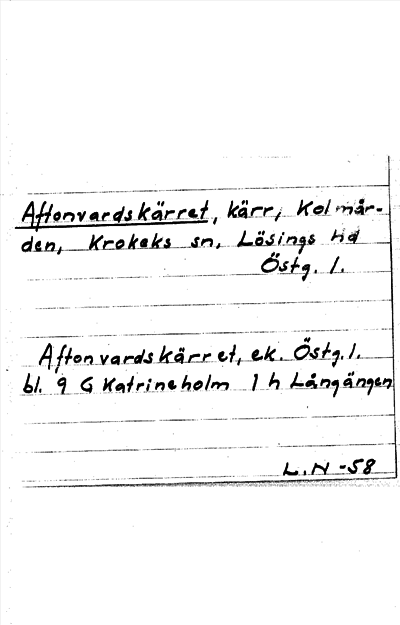 Aftonvardskärret, kärr, Kolmår-
den, Krokeks sn, Lösings hd
Östg. l.
Aftonvardskärret, ek. Östg. l.
bl. 9 G Katrineholm 1 h Långängen
L.N -58